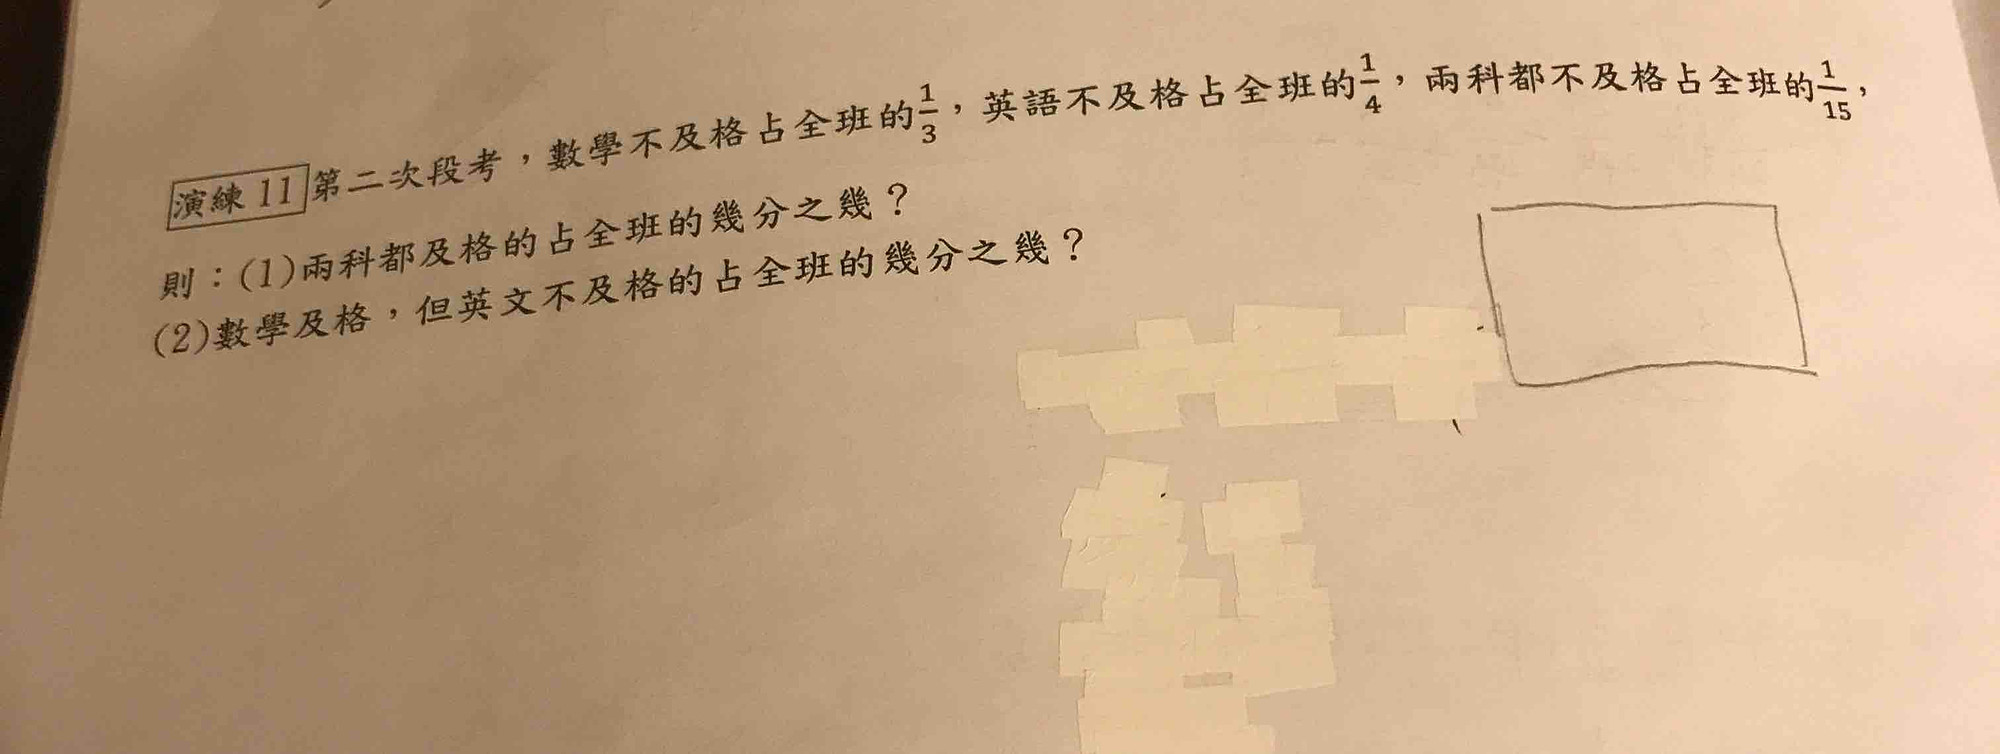 演練 11 第二次段考，數學不及格占全班的1/3，英語不及格占全班的1/4，兩科都不及格占全班的1/15，
則：(1)兩科都及格的占全班的幾分之幾？
(2)數學及格，但英文不及格的占全班的幾分之幾？